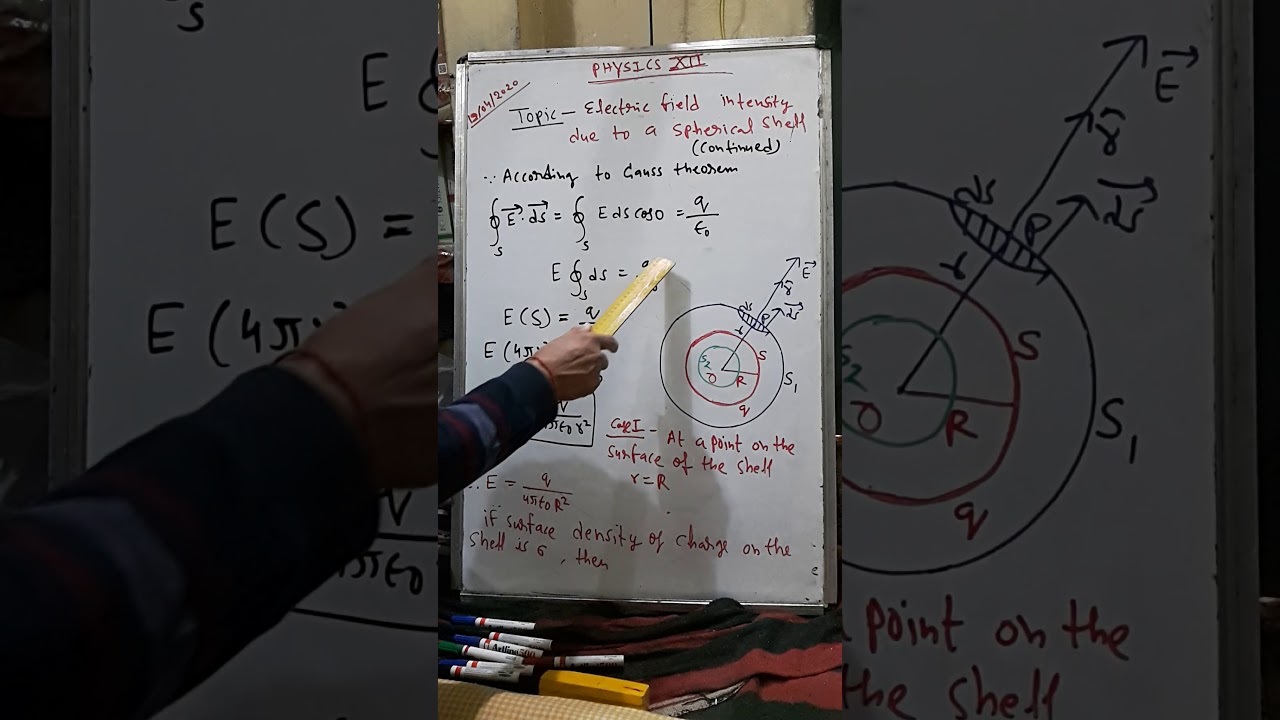 PHYSICS XII
19/04/2020
Topic - Electric field intensity
due to a spherical shell
(continued)
∵ According to Gauss theorem
∮S E⃗ . ds⃗ = ∮S E ds cos0 = q/ε0
E ∮S ds =
E(S) = q
E (4π
4πε0 r²
E⃗
r̂
ds⃗
ds
P
r
S
S2
O
R
q
S1
Case I - At a point on the
surface of the shell
r = R
∴ E = q/4πε0 R²
if surface density of charge on the
shell is σ, then
Artline 500